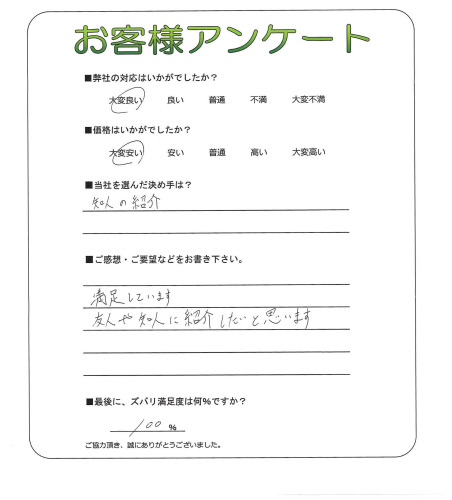 お客様アンケート
■弊社の対応はいかがでしたか？
大変良い 良い 普通 不満 大変不満
■価格はいかがでしたか？
大変安い 安い 普通 高い 大変高い
■当社を選んだ決め手は？
知人の紹介
■ご感想・ご要望などをお書き下さい。
満足しています
友人や知人に紹介したいと思います
■最後に、ズバリ満足度は何%ですか？
100 %
ご協力頂き、誠にありがとうございました。